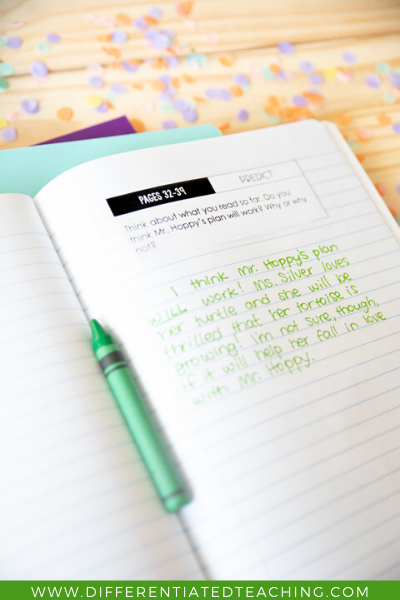 PAGES 32-39
PREDICT
Think about what you read so far. Do you
think Mr. Hoppy's plan will work? Why or why
not?
I think Mr. Hoppy's plan
WILL work! Ms. Silver loves
her turtle and she will be
thrilled that her tortoise is
growing! I'm not sure, though,
if it will help her fall in love
with Mr. Hoppy.
WWW.DIFFERENTIATEDTEACHING.COM